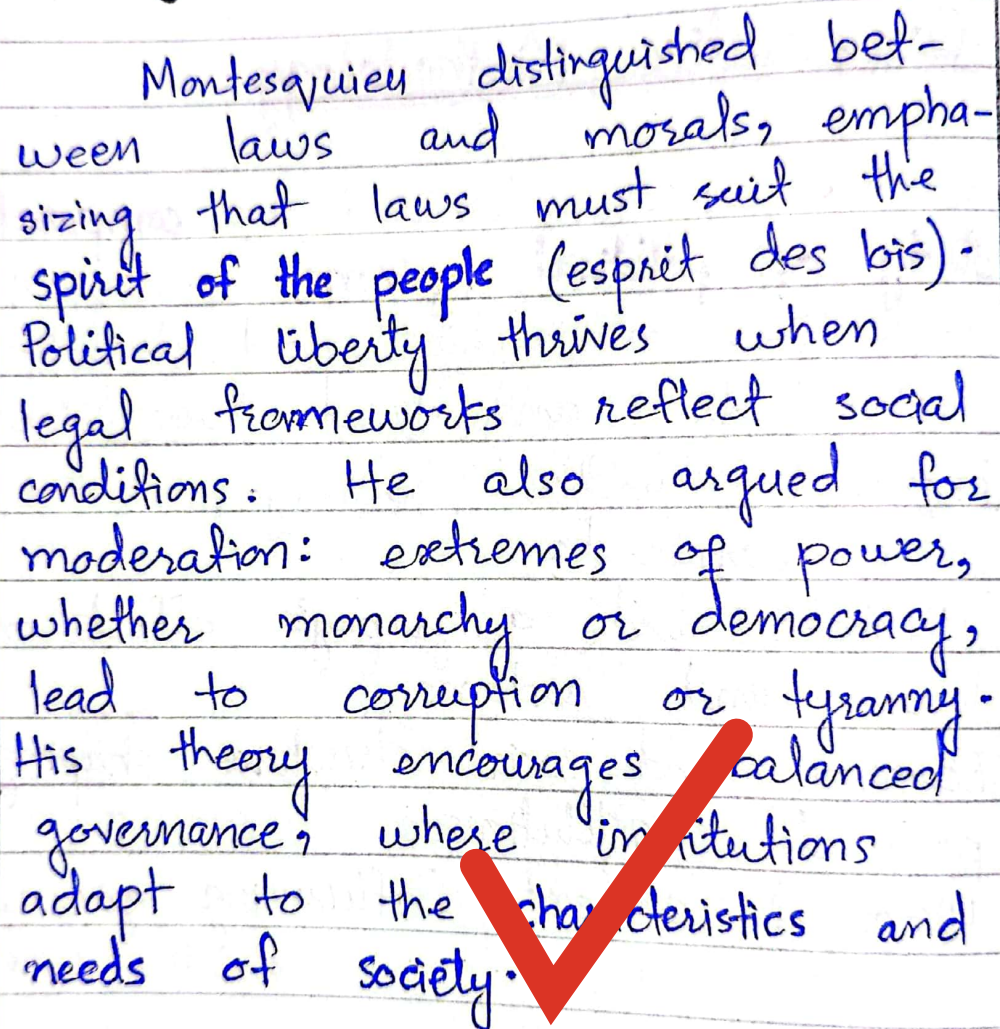 Montesquieu distinguished bet-
ween laws and morals, empha-
sizing that laws must suit the
spirit of the people (esprit des lois).
Political liberty thrives when
legal frameworks reflect social
conditions. He also argued for
moderation: extremes of power,
whether monarchy or democracy,
lead to corruption or tyranny.
His theory encourages balanced
governance, where institutions
adapt to the characteristics and
needs of society.